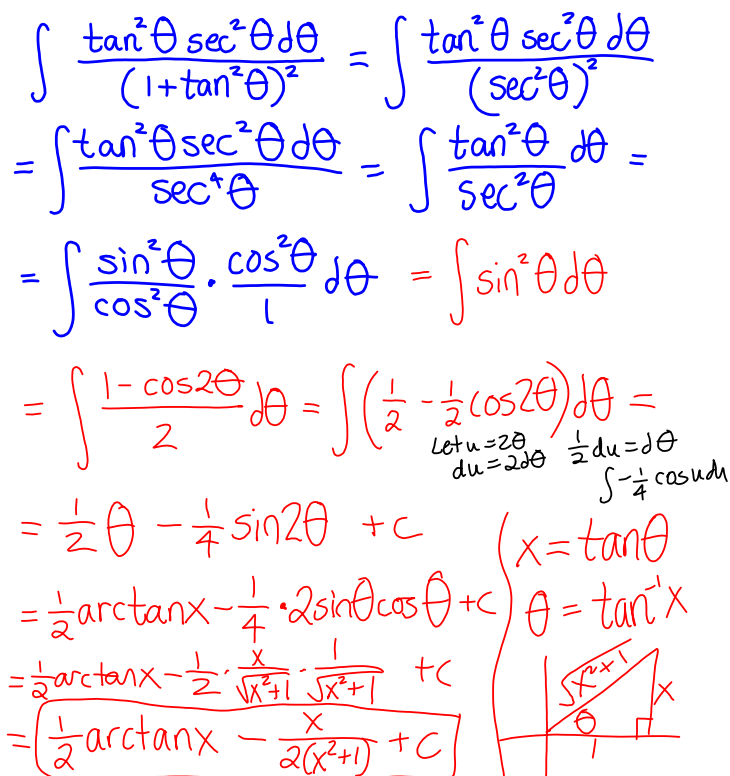 ∫ tan²θ sec²θdθ / (1+tan²θ)² = ∫ tan²θ sec²θ dθ / (sec²θ)²
= ∫ tan²θ sec²θ dθ / sec⁴θ = ∫ tan²θ / sec²θ dθ =
= ∫ sin²θ / cos²θ · cos²θ / 1 dθ = ∫ sin²θ dθ
= ∫ 1 - cos2θ / 2 dθ = ∫ (1/2 - 1/2 cos2θ) dθ =
Let u = 2θ 1/2 du = dθ
du = 2dθ
∫ -1/4 cos u du
= 1/2 θ - 1/4 sin2θ + c
x = tanθ
= 1/2 arctanx - 1/4 · 2sinθcosθ + c
θ = tan⁻¹x
= 1/2 arctanx - 1/2 · x/√x²+1 · 1/√x²+1 + c
√x²x1
x
θ
1
= 1/2 arctanx - x / 2(x²+1) + c